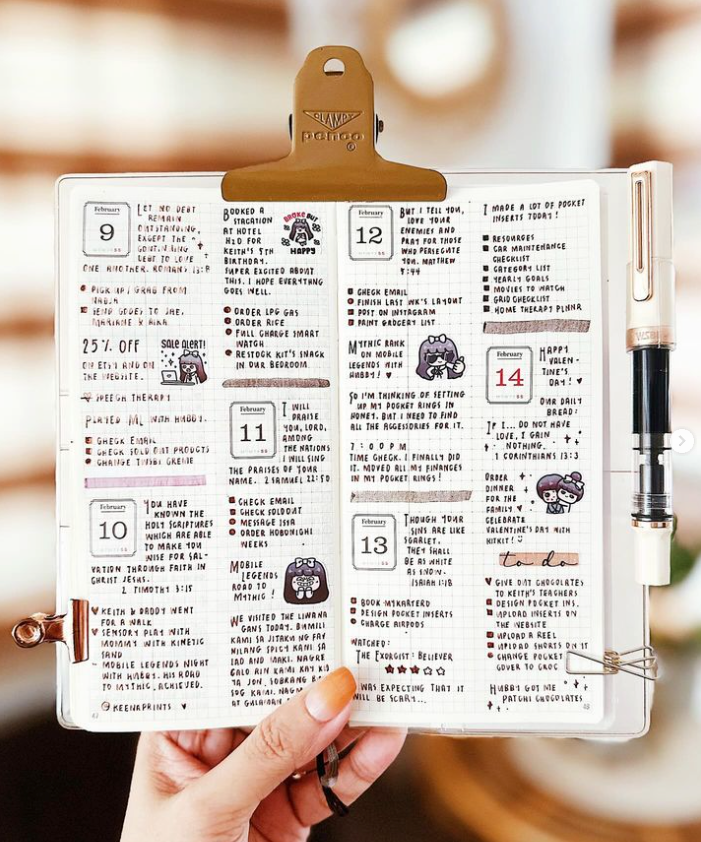 CLAMP
penco
February
9
LET NO DEBT
REMAIN
OUTSTANDING,
EXCEPT THE
CONTINUING
DEBT TO LOVE
ONE ANOTHER. ROMANS 13:8
PICK UP/GRAB FROM
NADJA
SEND GCODES TO JHE,
MARIANE & AIKA
25% OFF
ON ETSY AND ON
THE WEBSITE.
SALE ALERT!
SPEECH THERAPY
PLAYED ML WITH HUBBY.
CHECK EMAIL
CHECK SOLD OUT PRODUCTS
CHANGE TWSBI
February
10
YOU HAVE
KNOWN THE
HOLY SCRIPTURES
WHICH ARE ABLE
TO MAKE YOU
WISE FOR SAL-
VATION THROUGH FAITH IN
CHRIST JESUS.
2 TIMOTHY 3:15
KEITH & DADDY WENT
FOR A WALK
SENSORY PLAY WITH
MOMMY WITH KINETIC
SAND
MOBILE LEGENDS NIGHT
WITH HUBBY. HIS ROAD
TO MYTHIC, ACHIEVED.
KEENAPRINTS
BOOKED A
STACATION
AT HOTEL
H2O FOR
KEITH'S 5TH
BIRTHDAY.
SUPER EXCITED ABOUT
THIS. I HOPE EVERYTHING
GOES WELL.
BROKE BUT
HAPPY
ORDER LPG GAS
ORDER RICE
FULL CHARGE SMART
WATCH
RESTOCK KIT'S SNACK
IN OUR BEDROOM
February
11
I WILL
PRAISE
YOU, LORD,
AMONG
THE NATIONS
I WILL SING
THE PRAISES OF YOUR
NAME. 2 SAMUEL 22:50
CHECK EMAIL
CHECK SOLDOUT
MESSAGE ISSA
ORDER HOBONICHI
WEEKS
MOBILE
LEGENDS
ROAD TO
MYTHIC!
WE VISITED THE LIWANA
GANG TODAY. BUMILI
KAMI SA JITAKU NG PAY
NILANG SPICY KAMI SA
IAO AND MAKI. NAGRE
GALO RIN KAMI KAY KUY
TA JON. SOBRANG B
SOG KAMI.
February
12
BUT I TELL YOU,
LOVE YOUR
ENEMIES AND
PRAY FOR THOSE
WHO PERSECUTE
YOU. MATTHEW
5:44
CHECK EMAIL
FINISH LAST WK'S LAYOUT
POST ON INSTAGRAM
PAINT GROCERY LIST
MYTHIC RANK
ON MOBILE
LEGENDS WITH
HUBBY!
SO I'M THINKING OF SETTING
UP MY POCKET RINGS IN
HONEY. BUT I NEED TO FIND
ALL THE ACCESSORIES FOR IT.
7:00PM
TIME CHECK. I FINALLY DID
IT. MOVED ALL MY FINANCES
IN MY POCKET RINGS!
February
13
THOUGH YOUR
SINS ARE LIKE
SCARLET,
THEY SHALL
BE AS WHITE
AS SNOW.
ISAIAH 1:18
BOOK MYKARTERO
DESIGN POCKET INSERTS
CHARGE AIRPODS
WATCHED:
THE EXORCIST: BELIEVER
WAS EXPECTING THAT IT
WILL BE SCARY...
I MADE A LOT OF POCKET
INSERTS TODAY!
RESOURCES
CAR MAINTENANCE
CHECKLIST
CATEGORY LIST
YEARLY GOALS
MOVIES TO WATCH
GRID CHECKLIST
HOME THERAPY PLNNR
February
14
HAPPY
VALEN-
TINE'S
DAY!
OUR DAILY
BREAD:
IF I... DO NOT HAVE
LOVE, I GAIN
NOTHING.
1 CORINTHIANS 13:3
ORDER
DINNER
FOR THE
FAMILY
CELEBRATE
VALENTINE'S DAY WITH
HITKIT!
to do
GIVE DAY CHOCOLATES
TO KEITH'S TEACHERS
DESIGN POCKET INS.
UPLOAD INSERTS ON
THE WEBSITE
UPLOAD A REEL
UPLOAD SHORTS ON YT
CHANGE POCKET
COVER TO CROC
HUBBY GOT ME
PATCHI CHOCOLATES